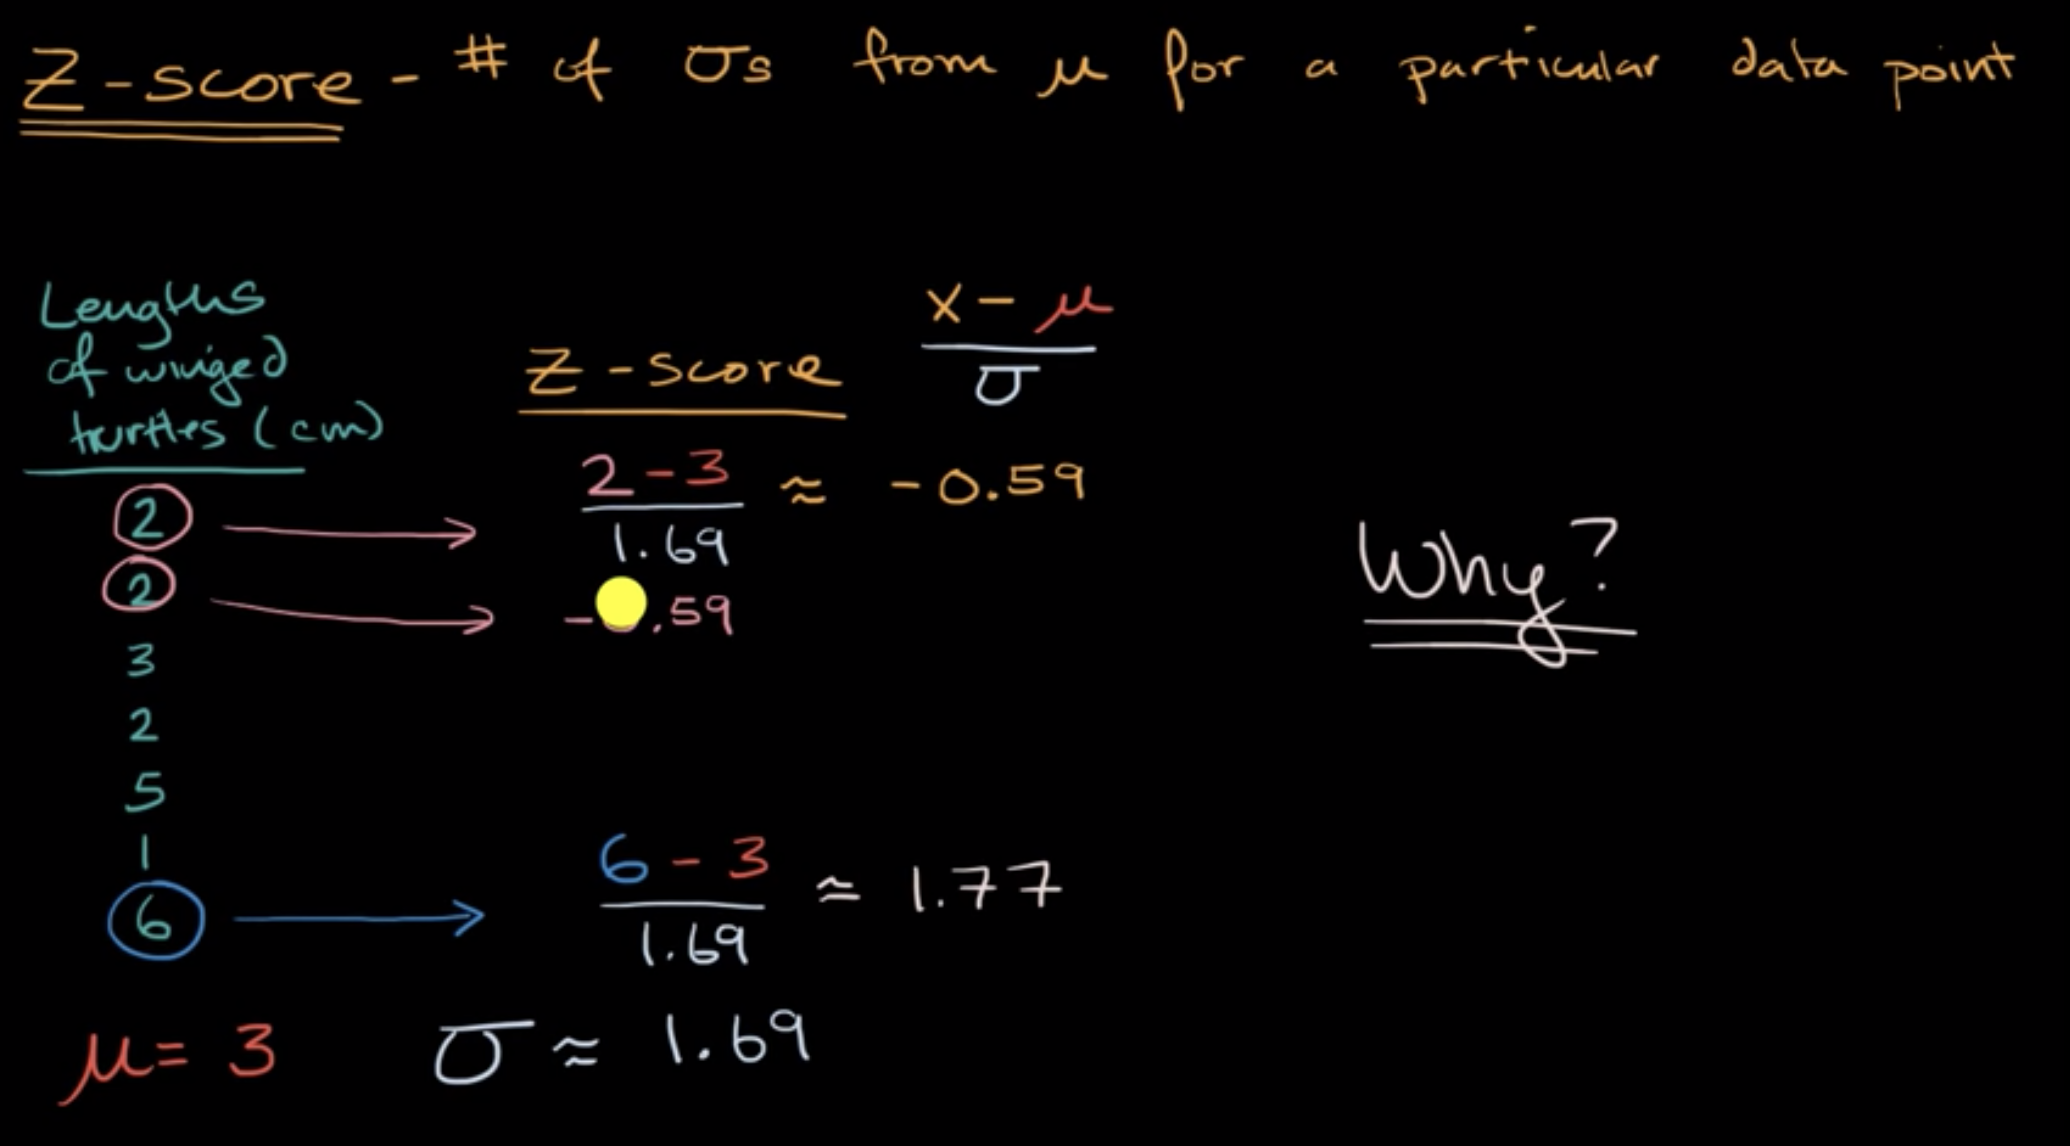 Z-score - # of σs from μ for a particular data point
Lengths
of winged
turtles (cm)
Z-score
x - μ
σ
2
2 - 3
1.69
≈ -0.59
2
- .59
3
2
5
1
6
6 - 3
1.69
≈ 1.77
Why?
μ = 3
σ ≈ 1.69